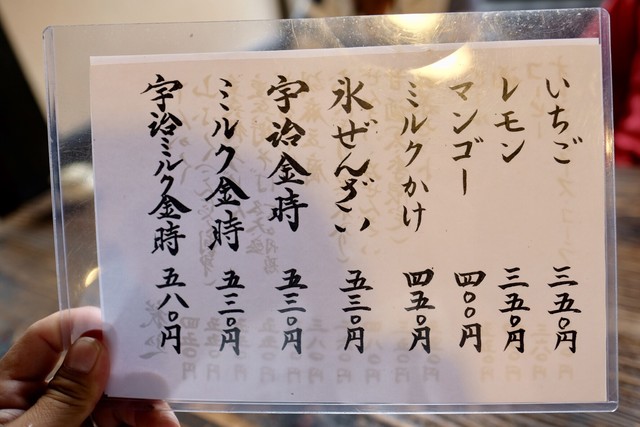 いちご 三五〇円
レモン 三五〇円
マンゴー 四〇〇円
ミルクかけ 四五〇円
氷ぜんざい 五三〇円
宇治金時 五三〇円
ミルク金時 五三〇円
宇治ミルク金時 五八〇円